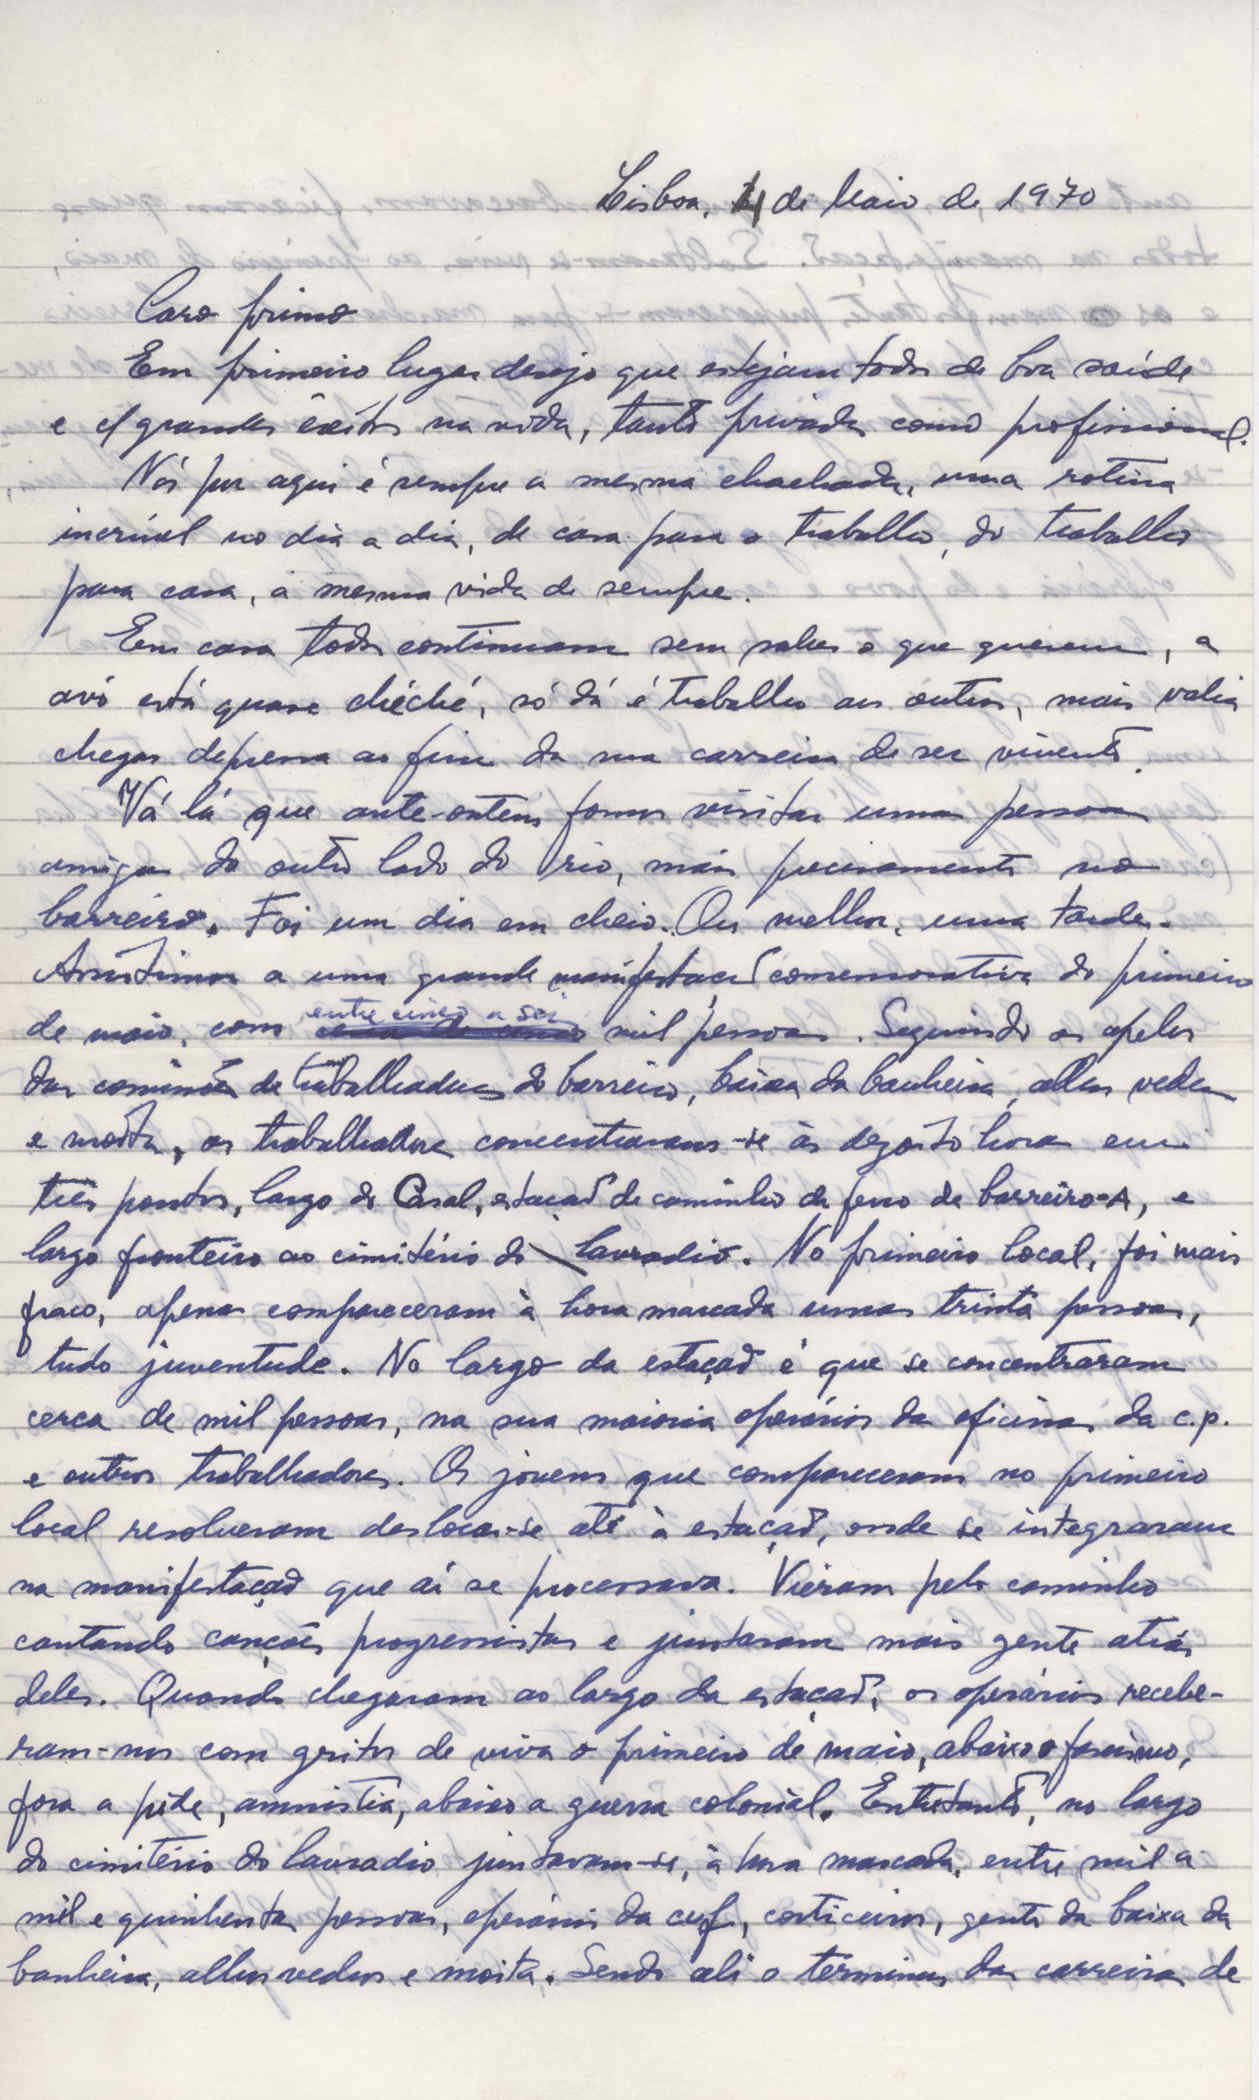 Lisboa, 4 de Maio de 1970
Caro primo
Em primeiro lugar desejo que estejam todos de boa saúde
e c/ grandes êxitos na vida, tanto privada como profissional.
Nós por aqui é sempre a mesma chachada, uma rotina
incrível no dia a dia, de casa para o trabalho, do trabalho
para casa, a mesma vida de sempre.
Em casa todos continuam sem saber o que querem, a
avó está quase chéché, só dá é trabalho aos outros, mais valia
chegar depressa ao fim da sua carreira de ser vivente.
Vá lá que ante-ontem fomos visitar uma pessoa
amiga do outro lado do rio, mais precisamente no
barreiro. Foi um dia em cheio. Ou melhor, uma tarde.
Assistimos a uma grande manifestação comemorativa do primeiro
de maio, com entre cinco a seis mil pessoas. Seguindo os apelos
das comissões de trabalhadores do barreiro, baixa da banheira, alhos vedros
e moita, os trabalhadores concentraram-se às dezoito horas em
três pontos, largo do Casal, estação de caminho de ferro de barreiro-A, e
largo fronteiro ao cimitério do lavradio. No primeiro local, foi mais
fraco, apenas compareceram à hora marcada umas trinta pessoas,
tudo juventude. No largo da estação é que se concentraram
cerca de mil pessoas, na sua maioria operários da oficina da c.p.
e outros trabalhadores. Os jovens que compareceram no primeiro
local resolveram deslocar-se até à estação, onde se integraram
na manifestação que aí se processava. Vieram pelo caminho
cantando canções progressistas e juntaram mais gente atrás
deles. Quando chegaram ao largo da estação, os operários recebe-
ram-nos com gritos de viva o primeiro de maio, abaixo o fascismo,
fora a pide, amnistia, abaixo a guerra colonial. Entretanto, no largo
do cimitério do lavradio juntavam-se, à hora marcada, entre mil a
mil e quinhentas pessoas, operários da cuf, corticeiros, gente da baixa da
banheira, alhos vedros e moita. Sendo ali o terminus das carreiras de